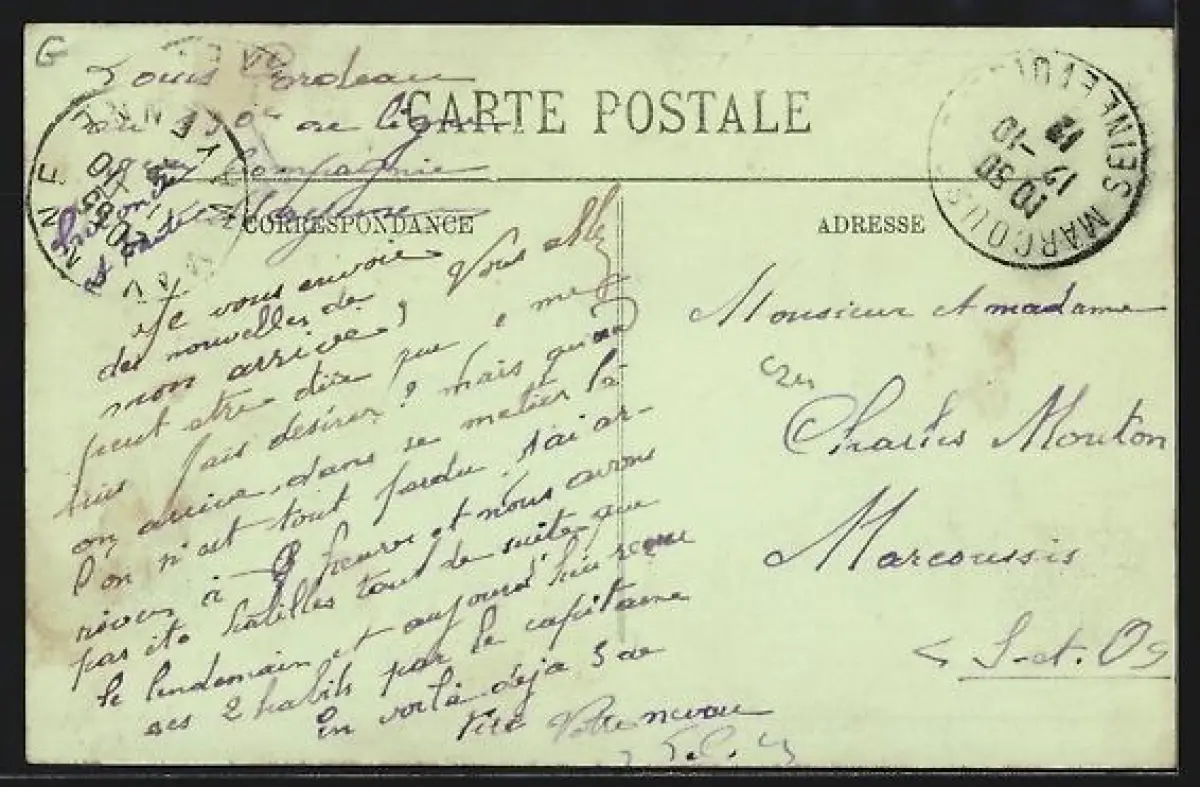 G
Louis Cordeau
au 130e de ligne
Compagnie
Mayenne
CARTE POSTALE
CORRESPONDANCE
ADRESSE
MARCOUSSIS SEINE ET OISE
10 30
12 -10
12
MAYENNE
Je vous envoie
des nouvelles de
mon arrivée, Vous allez
peut etre dire que je me
suis fais désirer? mais quand
on arrive dans se metier là
l'on n'ait tout perdu. J'ai ar-
rivée à 9 heures et nous avons
pas été habilles tout de suite que
le lendemain et aujourd'hui reçu
ses 2 habits par le capitaine
En voilà déja 3 de
Votre neveu
L. C.
Monsieur et madame
Charles Mouton
Marcoussis
S-et-O